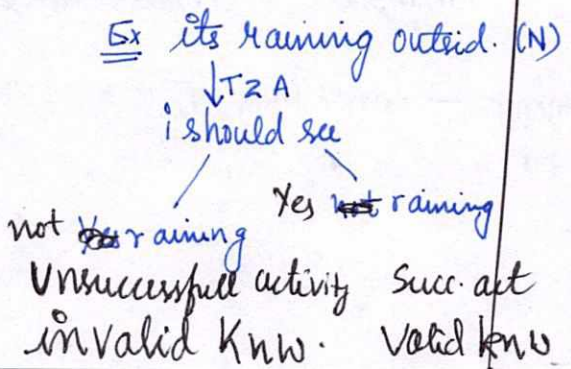 Ex its raining outsid. (N)
↓ T2A
i should see
not raining
Yes raining
Unsuccessfull activity Succ. act
invalid Knw. Valid knw